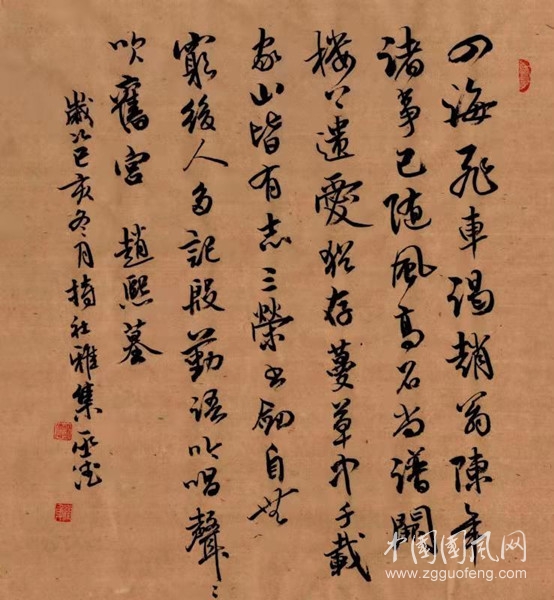 四海飛車谒趙翁陳年
諸事已随風高名尚譜關
樓上遺愛猶存蔓草中千載
家山皆有志三榮書劍自無
窮後人多記殷勤語吟唱聲々
吹舊宫 趙熙墓
歲次己亥冬月社雅集
中國國風网
www.zgguofeng.com